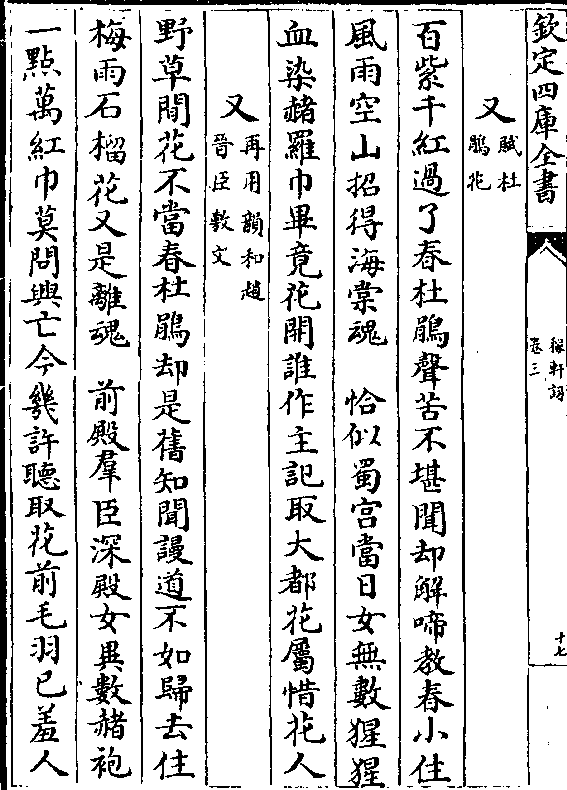 欽定四庫全書
稼軒詞
卷三
十七
又
賦杜
鵑花
百紫千紅過了春杜鵑聲苦不堪聞却解啼教春小住
風雨空山招得海棠魂　恰似蜀宫當日女無數猩猩
血染赭羅巾畢竟花開誰作主記取大都花屬惜花人
又
再用韻和趙
晉臣敷文
野草閒花不當春杜鵑却是舊知聞謾道不如歸去住
梅雨石榴花又是離魂　前殿羣臣深殿女異數赭袍
一點萬紅巾莫問興亡今幾許聽取花前毛羽已羞人